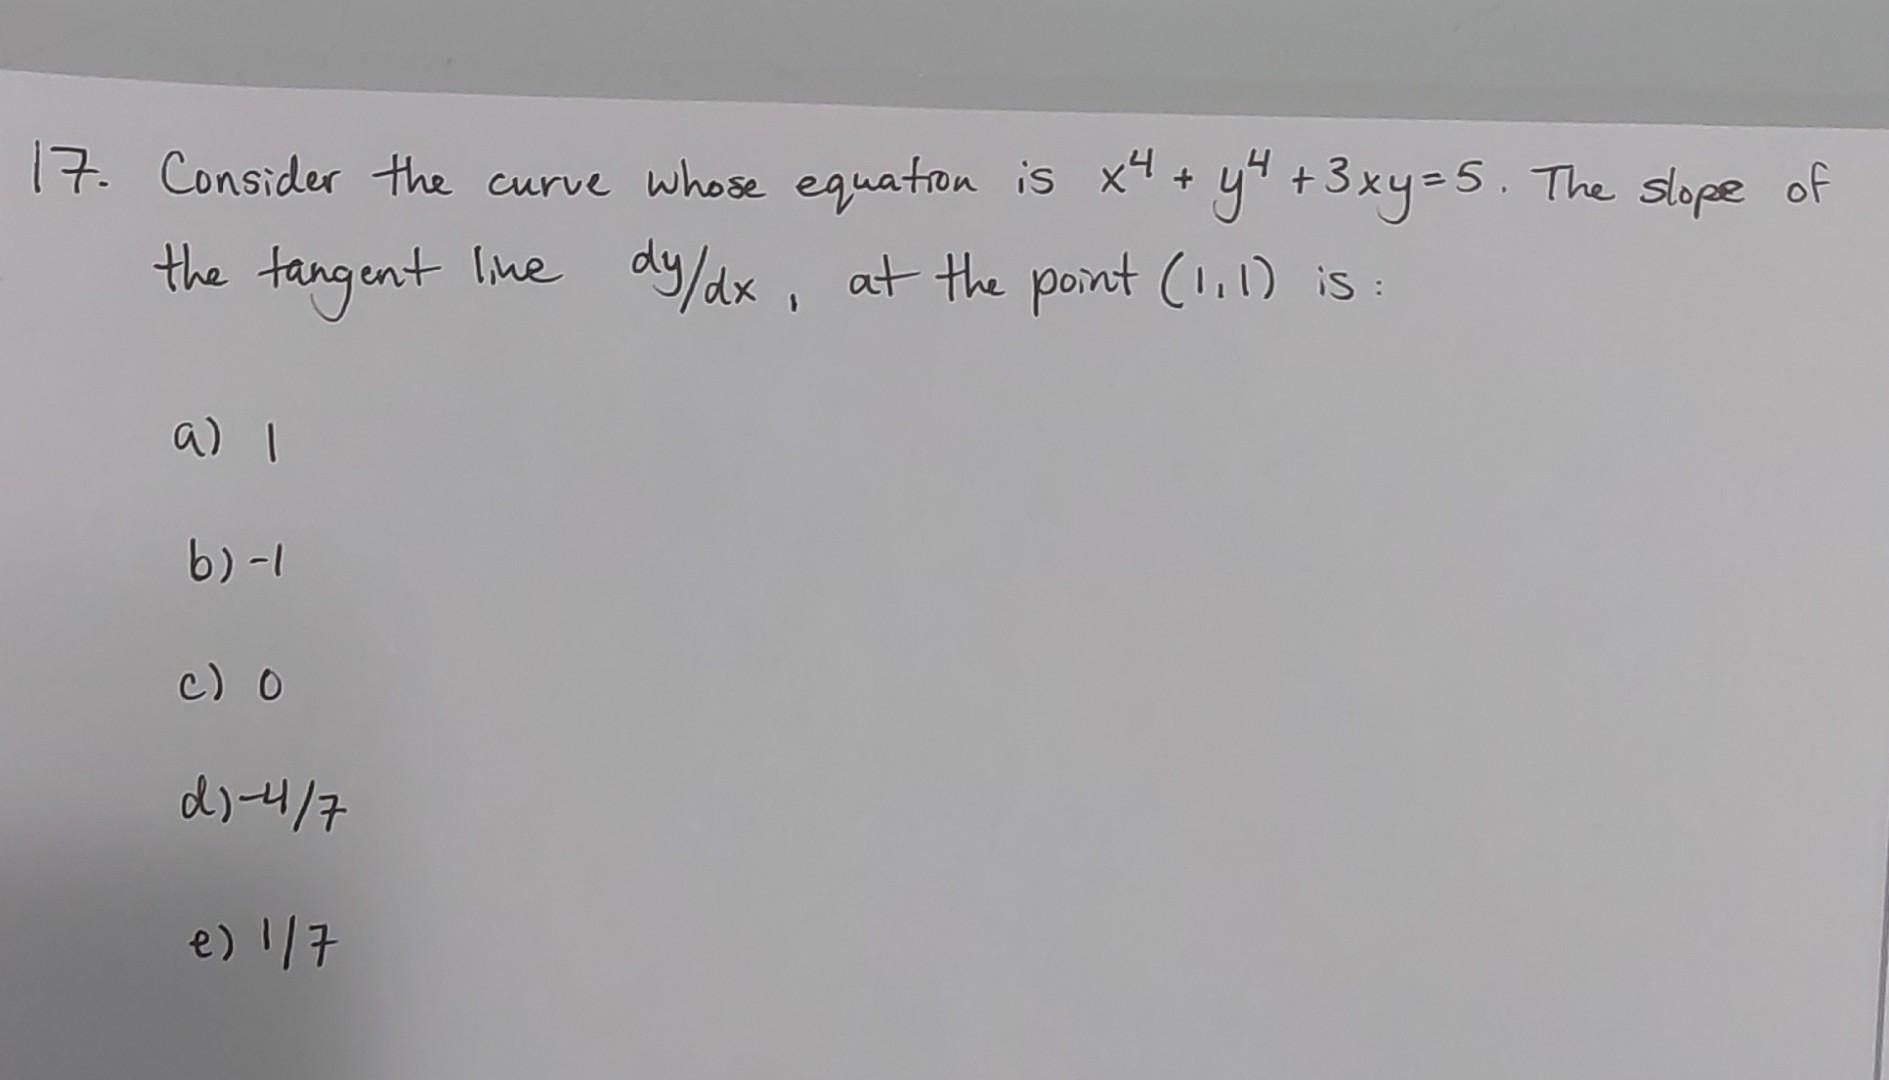 17. Consider the curve whose equation is x⁴ + y⁴ + 3xy = 5. The slope of
the tangent line dy/dx, at the point (1,1) is:
a) 1
b) -1
c) 0
d) -4/7
e) 1/7